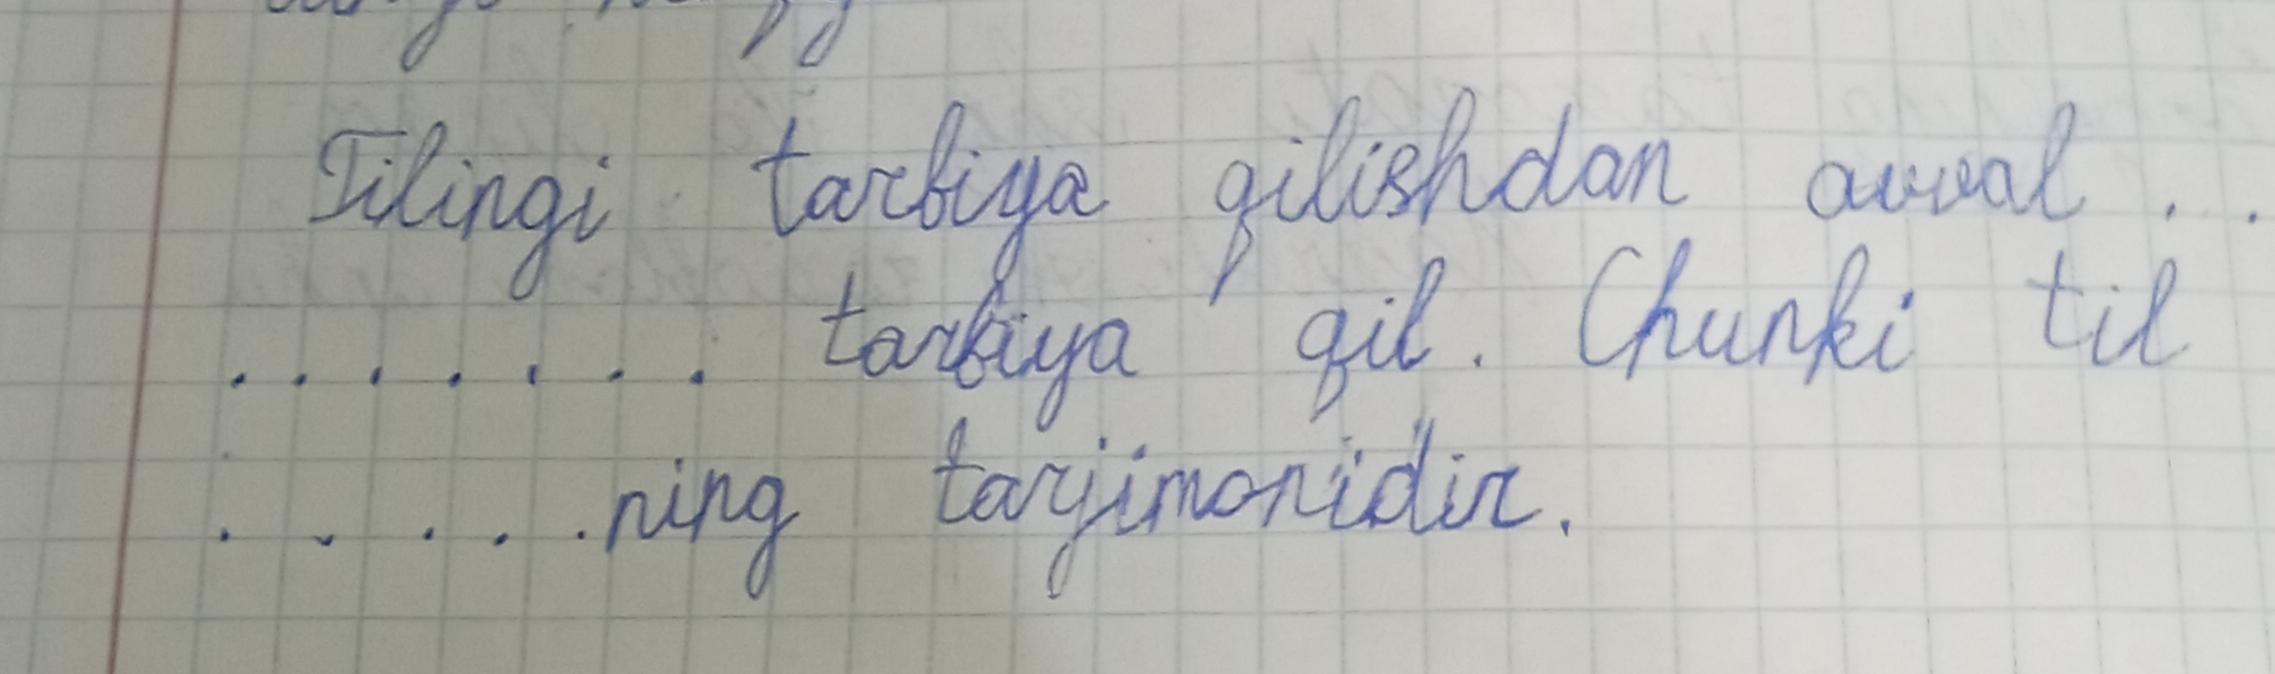 Tilingi tarbiya qilishdan avval . .
. . . . . . . tarbiya qil. Chunki til
. . . . . ning tarjimonidir.